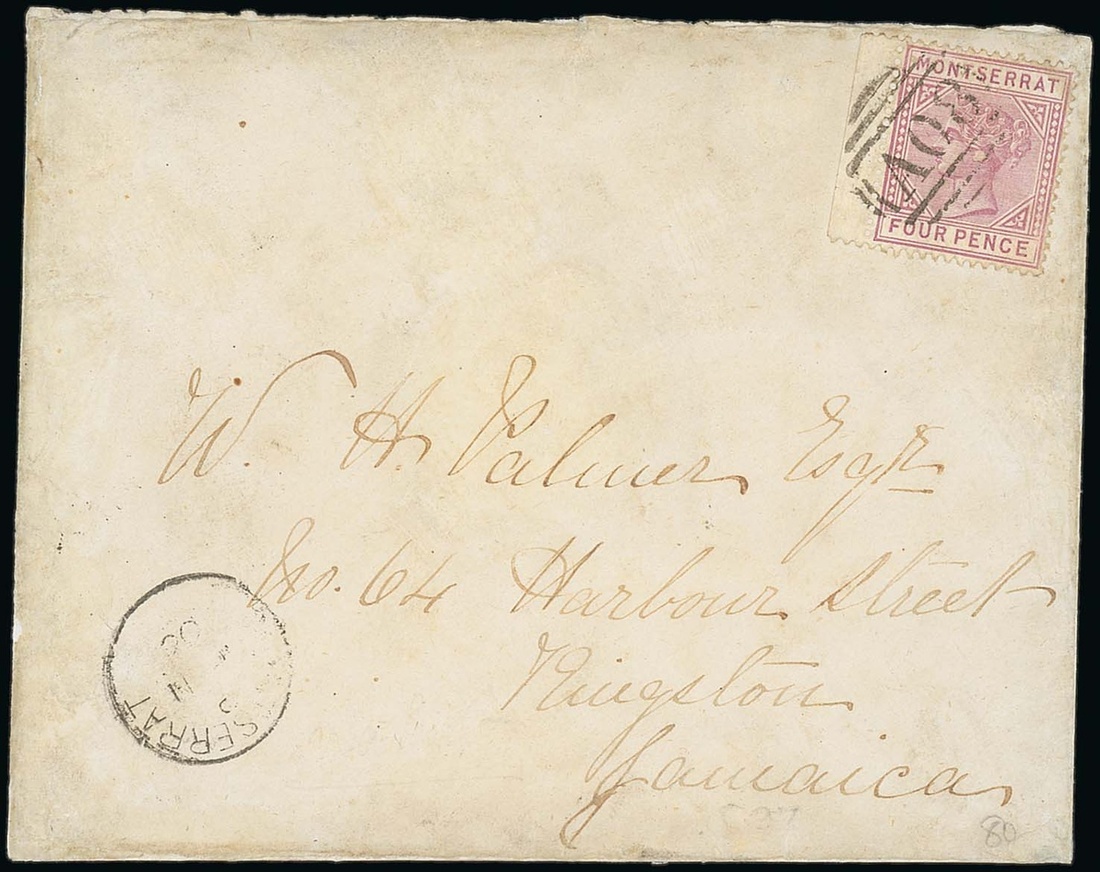 MONTSERRAT
A08
FOUR PENCE
W. H. Palmer Esqr
No. 64 Harbour Street
Kingston
Jamaica
SERRAT
80